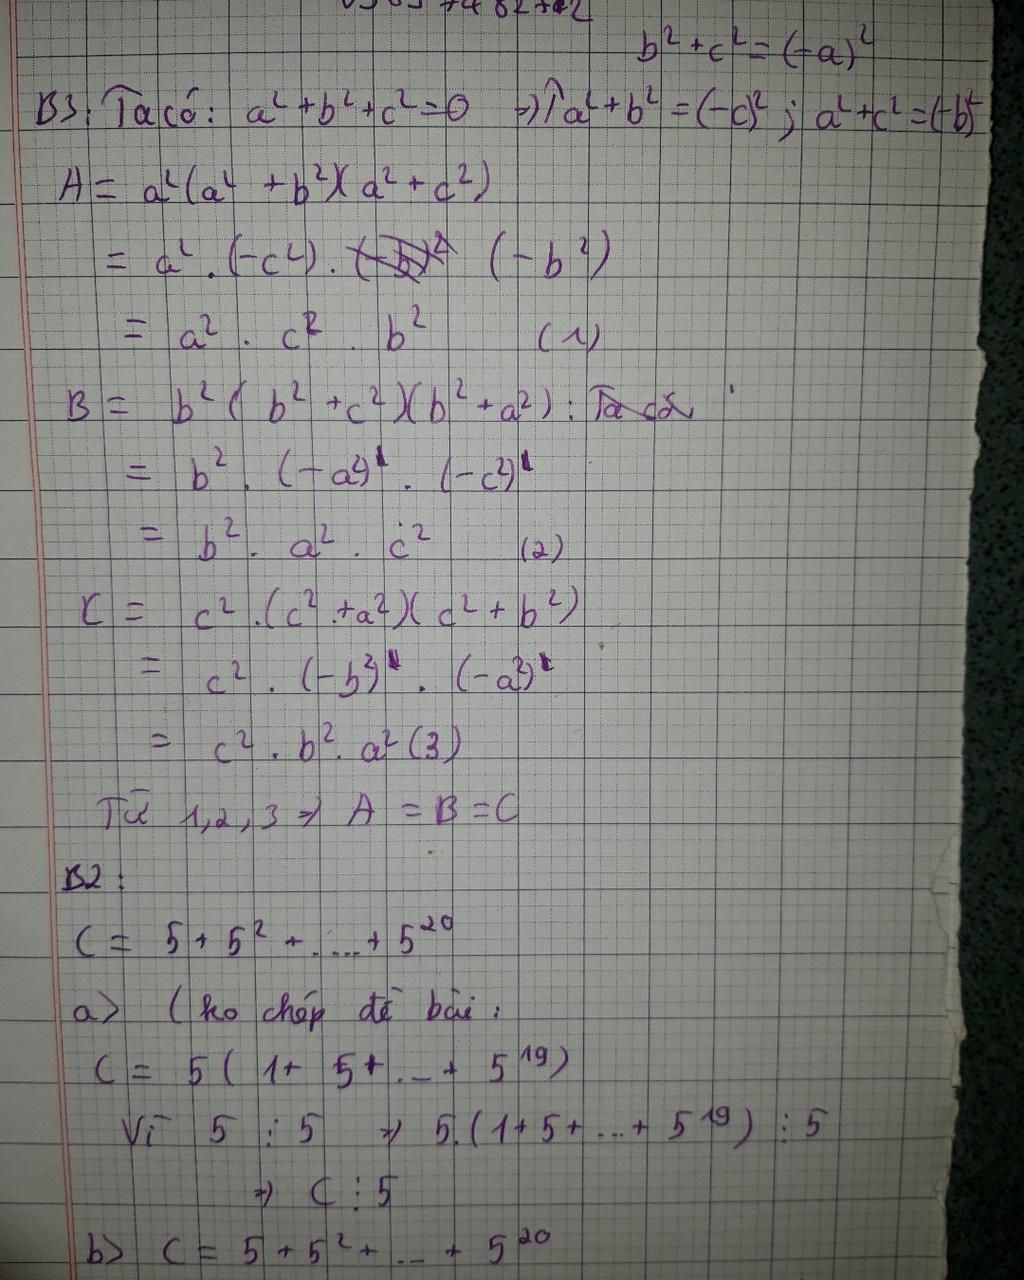 b² + c² = (-a)²
B3: Ta có: a² + b² + c² = 0 => a² + b² = (-c)² ; a² + c² = (-b)²
A = a²(a² + b²)(a² + c²)
= a² . (-c²) . (-b²)
= a² . c² . b² (1)
B = b²( b² + c²)(b² + a²) :
= b² . (-a²) . (-c²)
= b² . a² . c² (2)
C = c² .(c² + a²)( c² + b²)
= c² . (-b²) . (-a²)
= c² . b² . a² (3)
Từ 1, 2, 3 => A = B = C
B2 :
C = 5 + 5² + ..... + 5²⁰
a> ( ko chép đề bài :
C = 5 ( 1 + 5 + ... + 5¹⁹)
Vì 5 ⋮ 5 => 5.(1 + 5 + ... + 5¹⁹) ⋮ 5
=> C ⋮ 5
b> C = 5 + 5² + ... + 5²⁰